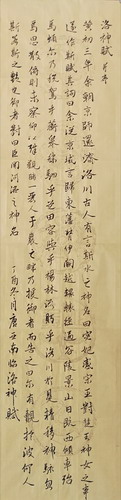 洛神賦 并序
黃初三年余朝京師還濟洛川古人有言斯水之神名曰宓妃感宋玉對楚王神女之事
遂作斯賦其詞曰余從京域言歸東藩背伊闕越轘轅經通谷陵景山日既西傾車殆
馬煩尔乃稅駕乎蘅皋秣駟乎芝田容與乎楊林流眄乎洛川於是精移神駭忽
焉思散俯則未察仰以殊觀睹一麗人于巖之畔乃援御者而告之曰尔有覿於彼何人
斯若斯之艷也御者對曰臣聞河洛之神名 丁酉冬月唐亞南臨洛神賦